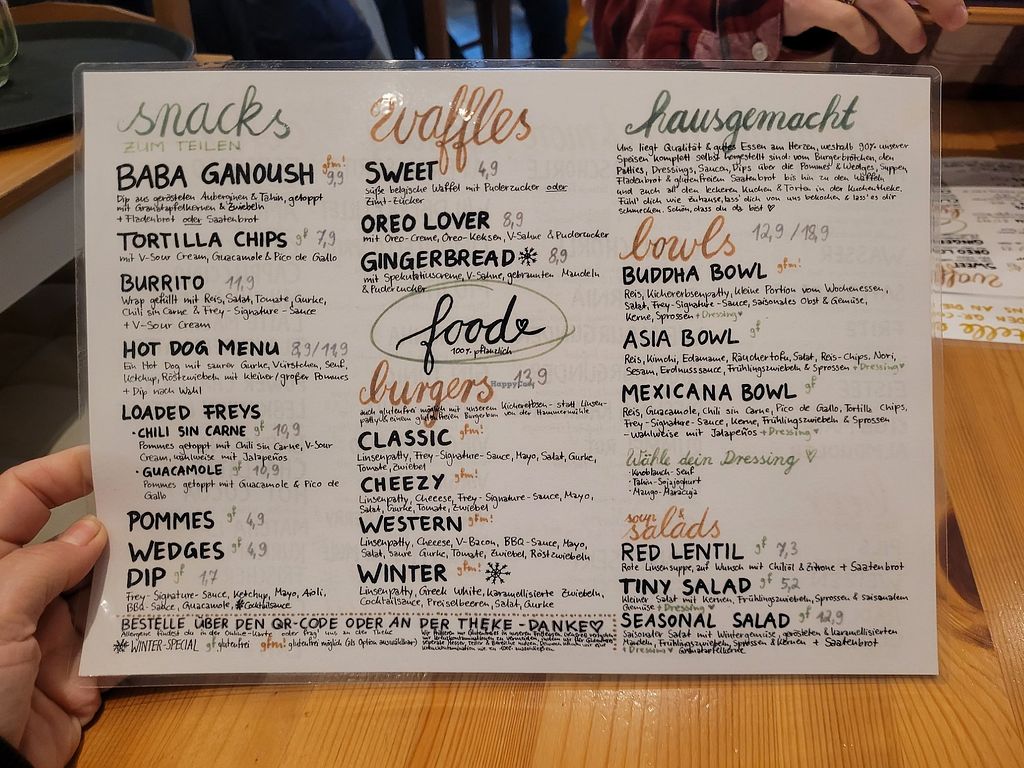 snacks
ZUM TEILEN
BABA GANOUSH gfm! 9,9
Dip aus gerösteten Auberginen & Tahin, getoppt
mit Granatapfelkernen & Zwiebeln
+ Fladenbrot oder Saatenbrot
TORTILLA CHIPS gf 7,9
mit V-Sour Cream, Guacamole & Pico de Gallo
BURRITO 11,9
Wrap gefüllt mit Reis, Salat, Tomate, Gurke,
Chili sin Carne & Frey-Signature-Sauce
+ V-Sour Cream
HOT DOG MENU 8,9/11,9
Ein Hot Dog mit saurer Gurke, Würstchen, Senf,
Ketchup, Röstzwiebeln mit kleiner/großer Pommes
+ Dip nach Wahl
LOADED FREYS
• CHILI SIN CARNE gf 10,9
Pommes getoppt mit Chili sin Carne, V-Sour
Cream, wahlweise mit Jalapeños
• GUACAMOLE gf 10,9
Pommes getoppt mit Guacamole & Pico de
Gallo
POMMES gf 4,9
WEDGES gf 4,9
DIP gf 1,7
Frey-Signature-Sauce, Ketchup, Mayo, Aioli,
BBQ-Sauce, Guacamole, Cocktailsauce
waffles
SWEET 4,9
süße belgische Waffel mit Puderzucker oder
Zimt-Zucker
OREO LOVER 8,9
mit Oreo-Creme, Oreo-Keksen, V-Sahne & Puderzucker
GINGERBREAD 8,9
mit Spekulatiuscreme, V-Sahne, gebrannten Mandeln
& Puderzucker
foode
100% pflanzlich
HappyCow
burgers 13,9
auch glutenfrei möglich mit unserem Kichererbsen- statt Linsen-
patty & einem glutenfreien Burgerbun von der Hammermühle
CLASSIC gfm!
Linsenpatty, Frey-Signature-Sauce, Mayo, Salat, Gurke,
Tomate, Zwiebel
CHEEZY gfm!
Linsenpatty, Cheeese, Frey-Signature-Sauce, Mayo,
Salat, Gurke, Tomate, Zwiebel
WESTERN gfm!
Linsenpatty, Cheese, V-Bacon, BBQ-Sauce, Mayo,
Salat, Saure Gurke, Tomate, Zwiebel, Röstzwiebeln
WINTER gfm!
Linsenpatty, Greek White, Karamellisierte Zwiebeln,
Cocktailsauce, Preiselbeeren, Salat, Gurke
hausgemacht
Uns liegt Qualität & gutes Essen am Herzen, weshalb 90% unserer
Speisen komplett selbst hergestellt sind: vom Burgerbrötchen, den
Patties, Dressings, Saucen, Dips über die Pommes & Wedges, Suppen,
Fladenbrot & glutenfreiem Saatenbrot bis hin zu den Waffeln
und auch all den leckeren Kuchen & Torten in der Kuchentheke.
Fühl' dich wie zuhause, lass' dich von uns bekochen & lass' es dir
schmecken. Schön, dass du da bist ♡
bowls 12,9 / 18,9
BUDDHA BOWL gfm!
Reis, Kichererbsenpatty, kleine Portion vom Wochenessen,
Salat, Frey-Signature-Sauce, saisonales Obst & Gemüse,
Kerne, Sprossen + Dressing ♥
ASIA BOWL gf
Reis, Kimchi, Edamame, Räuchertofu, Salat, Reis-Chips, Nori,
Sesam, Erdnusssauce, Frühlingszwiebeln & Sprossen + Dressing ♥
MEXICANA BOWL gf
Reis, Guacamole, Chili sin Carne, Pico de Gallo, Tortilla Chips,
Frey-Signature-Sauce, Kerne, Frühlingszwiebeln & Sprossen
- wahlweise mit Jalapeños + Dressing ♥
Wähle dein Dressing ♡
• Knoblauch-Senf
• Tahin-Sojajoghurt
• Mango-Maracuja
soup & salads
RED LENTIL gf 7,3
Rote Linsensuppe, auf Wunsch mit Chiliöl & Zitrone + Saatenbrot
TINY SALAD gf 5,2
Kleiner Salat mit Kernen, Frühlingszwiebeln, Sprossen & saisonalem
Gemüse + Dressing ♥
SEASONAL SALAD gf 12,9
Saisonaler Salat mit Wintergemüse, gerösteten & karamellisierten
Mandeln, Frühlingszwiebeln, Sprossen & Kernen + Saatenbrot
+ Dressing ♥ Granatapfelkerne
BESTELLE ÜBER DEN QR-CODE ODER AN DER THEKE - DANKE♡
Allergene findest du in der Online-Karte oder frag' uns an der Theke
WINTER-SPECIAL gf glutenfrei gfm! glutenfrei möglich (als Option auswählbar)